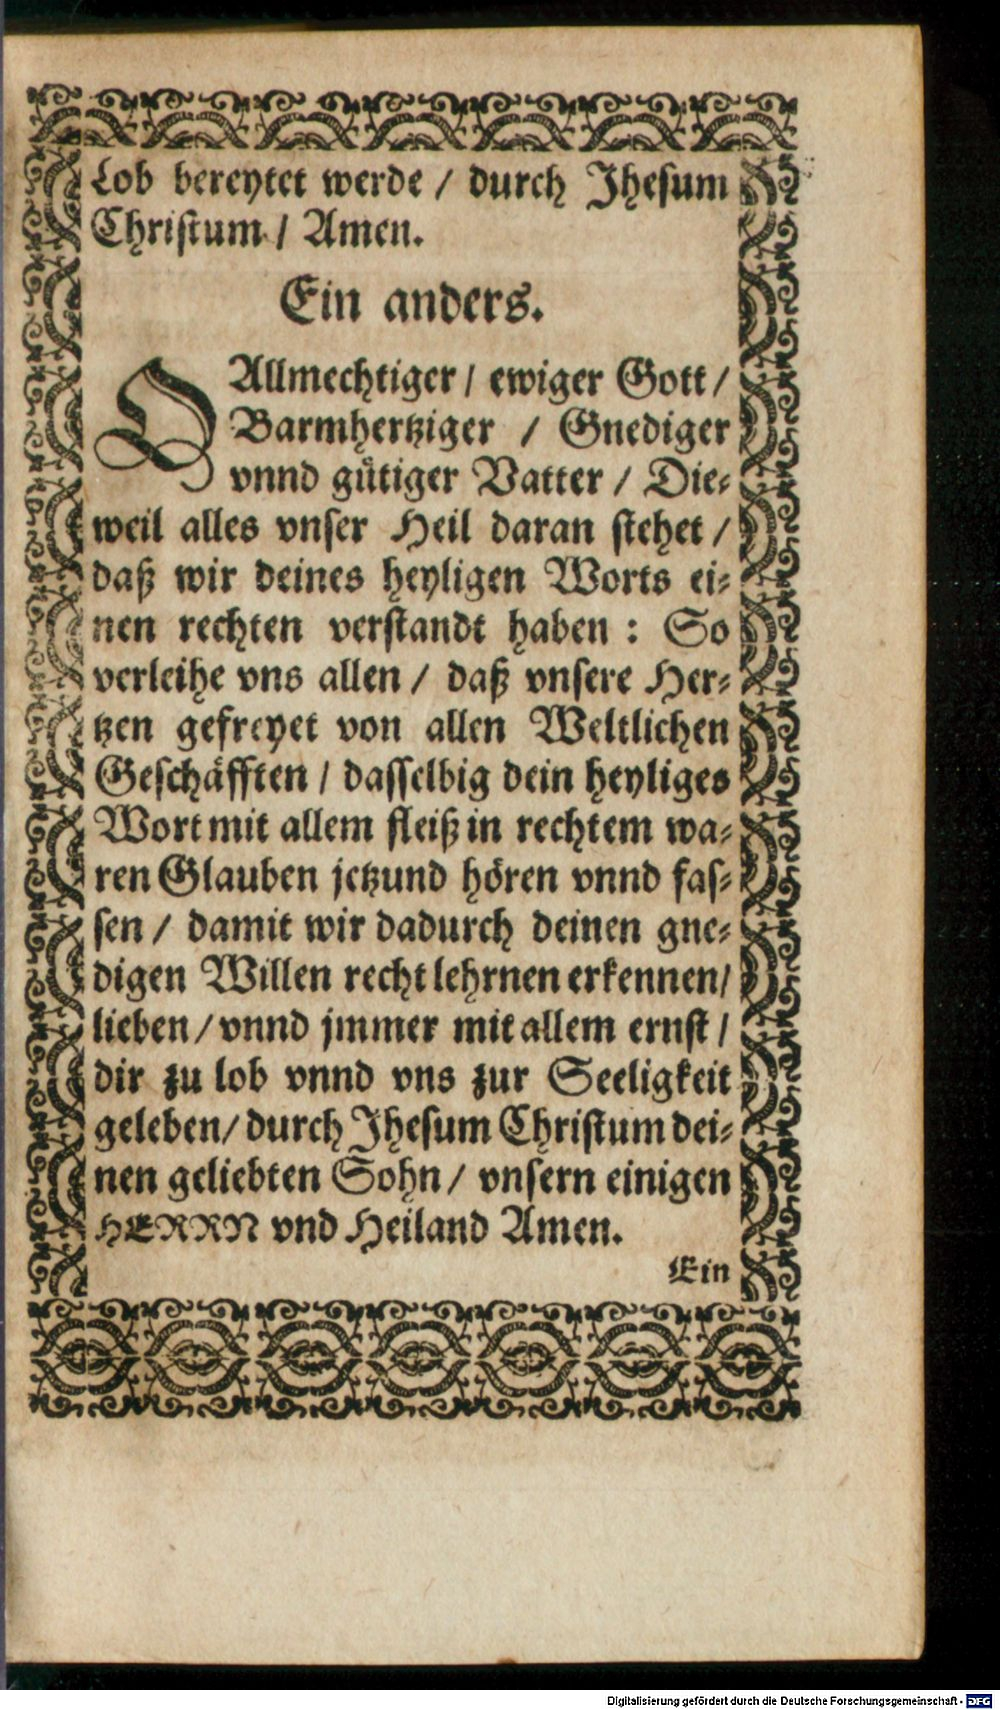 Lob bereytet werde / durch Jhesum
Christum / Amen.
Ein anders.
O Allmechtiger / ewiger Gott /
Barmhertziger / Gnediger
vnnd gütiger Vatter / Die⸗
weil alles vnser Heil daran stehet /
daß wir deines heyligen Worts ei⸗
nen rechten verstandt haben : So
verleihe vns allen / daß vnsere Her⸗
tzen gefreyet von allen Weltlichen
Geschäfften / dasselbig dein heyliges
Wort mit allem fleiß in rechtem wa⸗
ren Glauben jetzund hören vnnd fas⸗
sen / damit wir dadurch deinen gne⸗
digen Willen recht lehrnen erkennen /
lieben / vnnd jmmer mit allem ernst /
dir zu lob vnnd vns zur Seeligkeit
geleben / durch Jhesum Christum dei⸗
nen geliebten Sohn / vnsern einigen
HERRN vnd Heiland Amen.
Ein
Digitalisierung gefördert durch die Deutsche Forschungsgemeinschaft - DFG